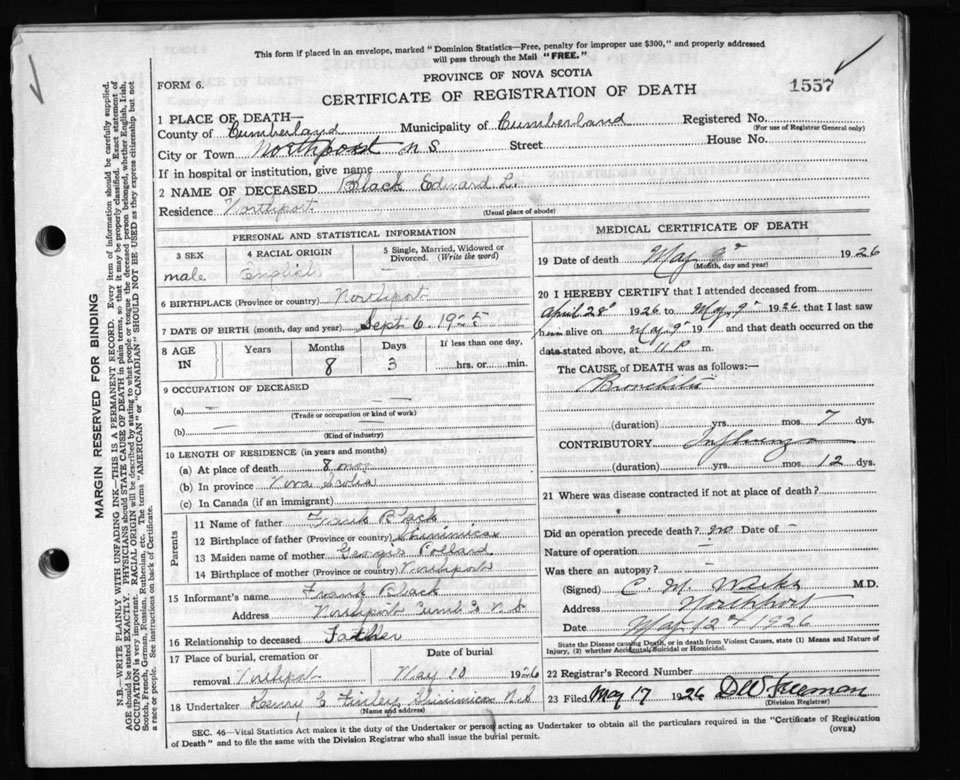 This form if placed in an envelope, marked "Dominion Statistics—Free, penalty for improper use $300," and properly addressed
will pass through the Mail "FREE."
PROVINCE OF NOVA SCOTIA
FORM 6.
CERTIFICATE OF REGISTRATION OF DEATH
1557
1 PLACE OF DEATH—
County of Cumberland Municipality of Cumberland Registered No.
(For use of Registrar General only)
City or Town Northport N S Street House No.
If in hospital or institution, give name
2 NAME OF DECEASED Black Edward L.
Residence Northport
(Usual place of abode)
PERSONAL AND STATISTICAL INFORMATION
3 SEX 4 RACIAL ORIGIN 5 Single, Married, Widowed or Divorced. (Write the word)
male English —
6 BIRTHPLACE (Province or country) Northport
7 DATE OF BIRTH (month, day and year) Sept 6 1925
8 AGE IN Years Months Days If less than one day,
8 3 hrs. or min.
9 OCCUPATION OF DECEASED
(a) — —
(Trade or occupation or kind of work)
(b) — —
(Kind of industry)
10 LENGTH OF RESIDENCE (in years and months)
(a) At place of death 8 mos
(b) In province Nova Scotia
(c) In Canada (if an immigrant)
Parents
11 Name of father Frank Black
12 Birthplace of father (Province or country) Shinimicas
13 Maiden name of mother Georgie Pollard
14 Birthplace of mother (Province or country) Northport
15 Informant's name Frank Black
Address Northport Cumb Co N.S
16 Relationship to deceased Father
17 Place of burial, cremation or removal Northport Date of burial May 10 1926
18 Undertaker Henry Finley Shinimicas N.S
(Name and address)
MEDICAL CERTIFICATE OF DEATH
19 Date of death May 9" 1926
(Month, day and year)
20 I HEREBY CERTIFY that I attended deceased from
April 28" 1926 to May 9" 1926 that I last saw
him alive on May 9" 19 and that death occurred on the
date stated above, at 11 P m.
The CAUSE of DEATH was as follows:—
Bronchitis
(duration) yrs. mos 7 dys.
CONTRIBUTORY Influenza
(duration) yrs. mos. 12 dys.
21 Where was disease contracted if not at place of death?
Did an operation precede death? no Date of —
Nature of operation
Was there an autopsy? —
(Signed) C. M. M.D.
Address Northport
Date May 12 1926
State the Disease causing Death, or in death from Violent Causes, state (1) Means and Nature of
Injury, (2) whether Accidental, Suicidal or Homicidal.
22 Registrar's Record Number
23 Filed May 17 1926 D W Freeman
(Division Registrar)
SEC. 46—Vital Statistics Act makes it the duty of the Undertaker or person acting as Undertaker to obtain all the particulars required in the "Certificate of Registration
of Death" and to file the same with the Division Registrar who shall issue the burial permit.
(OVER)
MARGIN RESERVED FOR BINDING
N.B.—WRITE PLAINLY WITH UNFADING INK—THIS IS A PERMANENT RECORD. Every item of information should be carefully supplied.
AGE should be stated EXACTLY. PHYSICIANS should STATE CAUSE OF DEATH in plain terms, so that it may be properly classified. Exact statement of
OCCUPATION is very important. RACIAL ORIGIN will be described by stating to what people or tongue the deceased person belonged, whether English, Irish,
Scotch, French, German, Russian, Ruthenian, etc. The terms "AMERICAN" or "CANADIAN" SHOULD NOT BE USED as they express citizenship but not
a race or people. See instructions on back of Certificate.